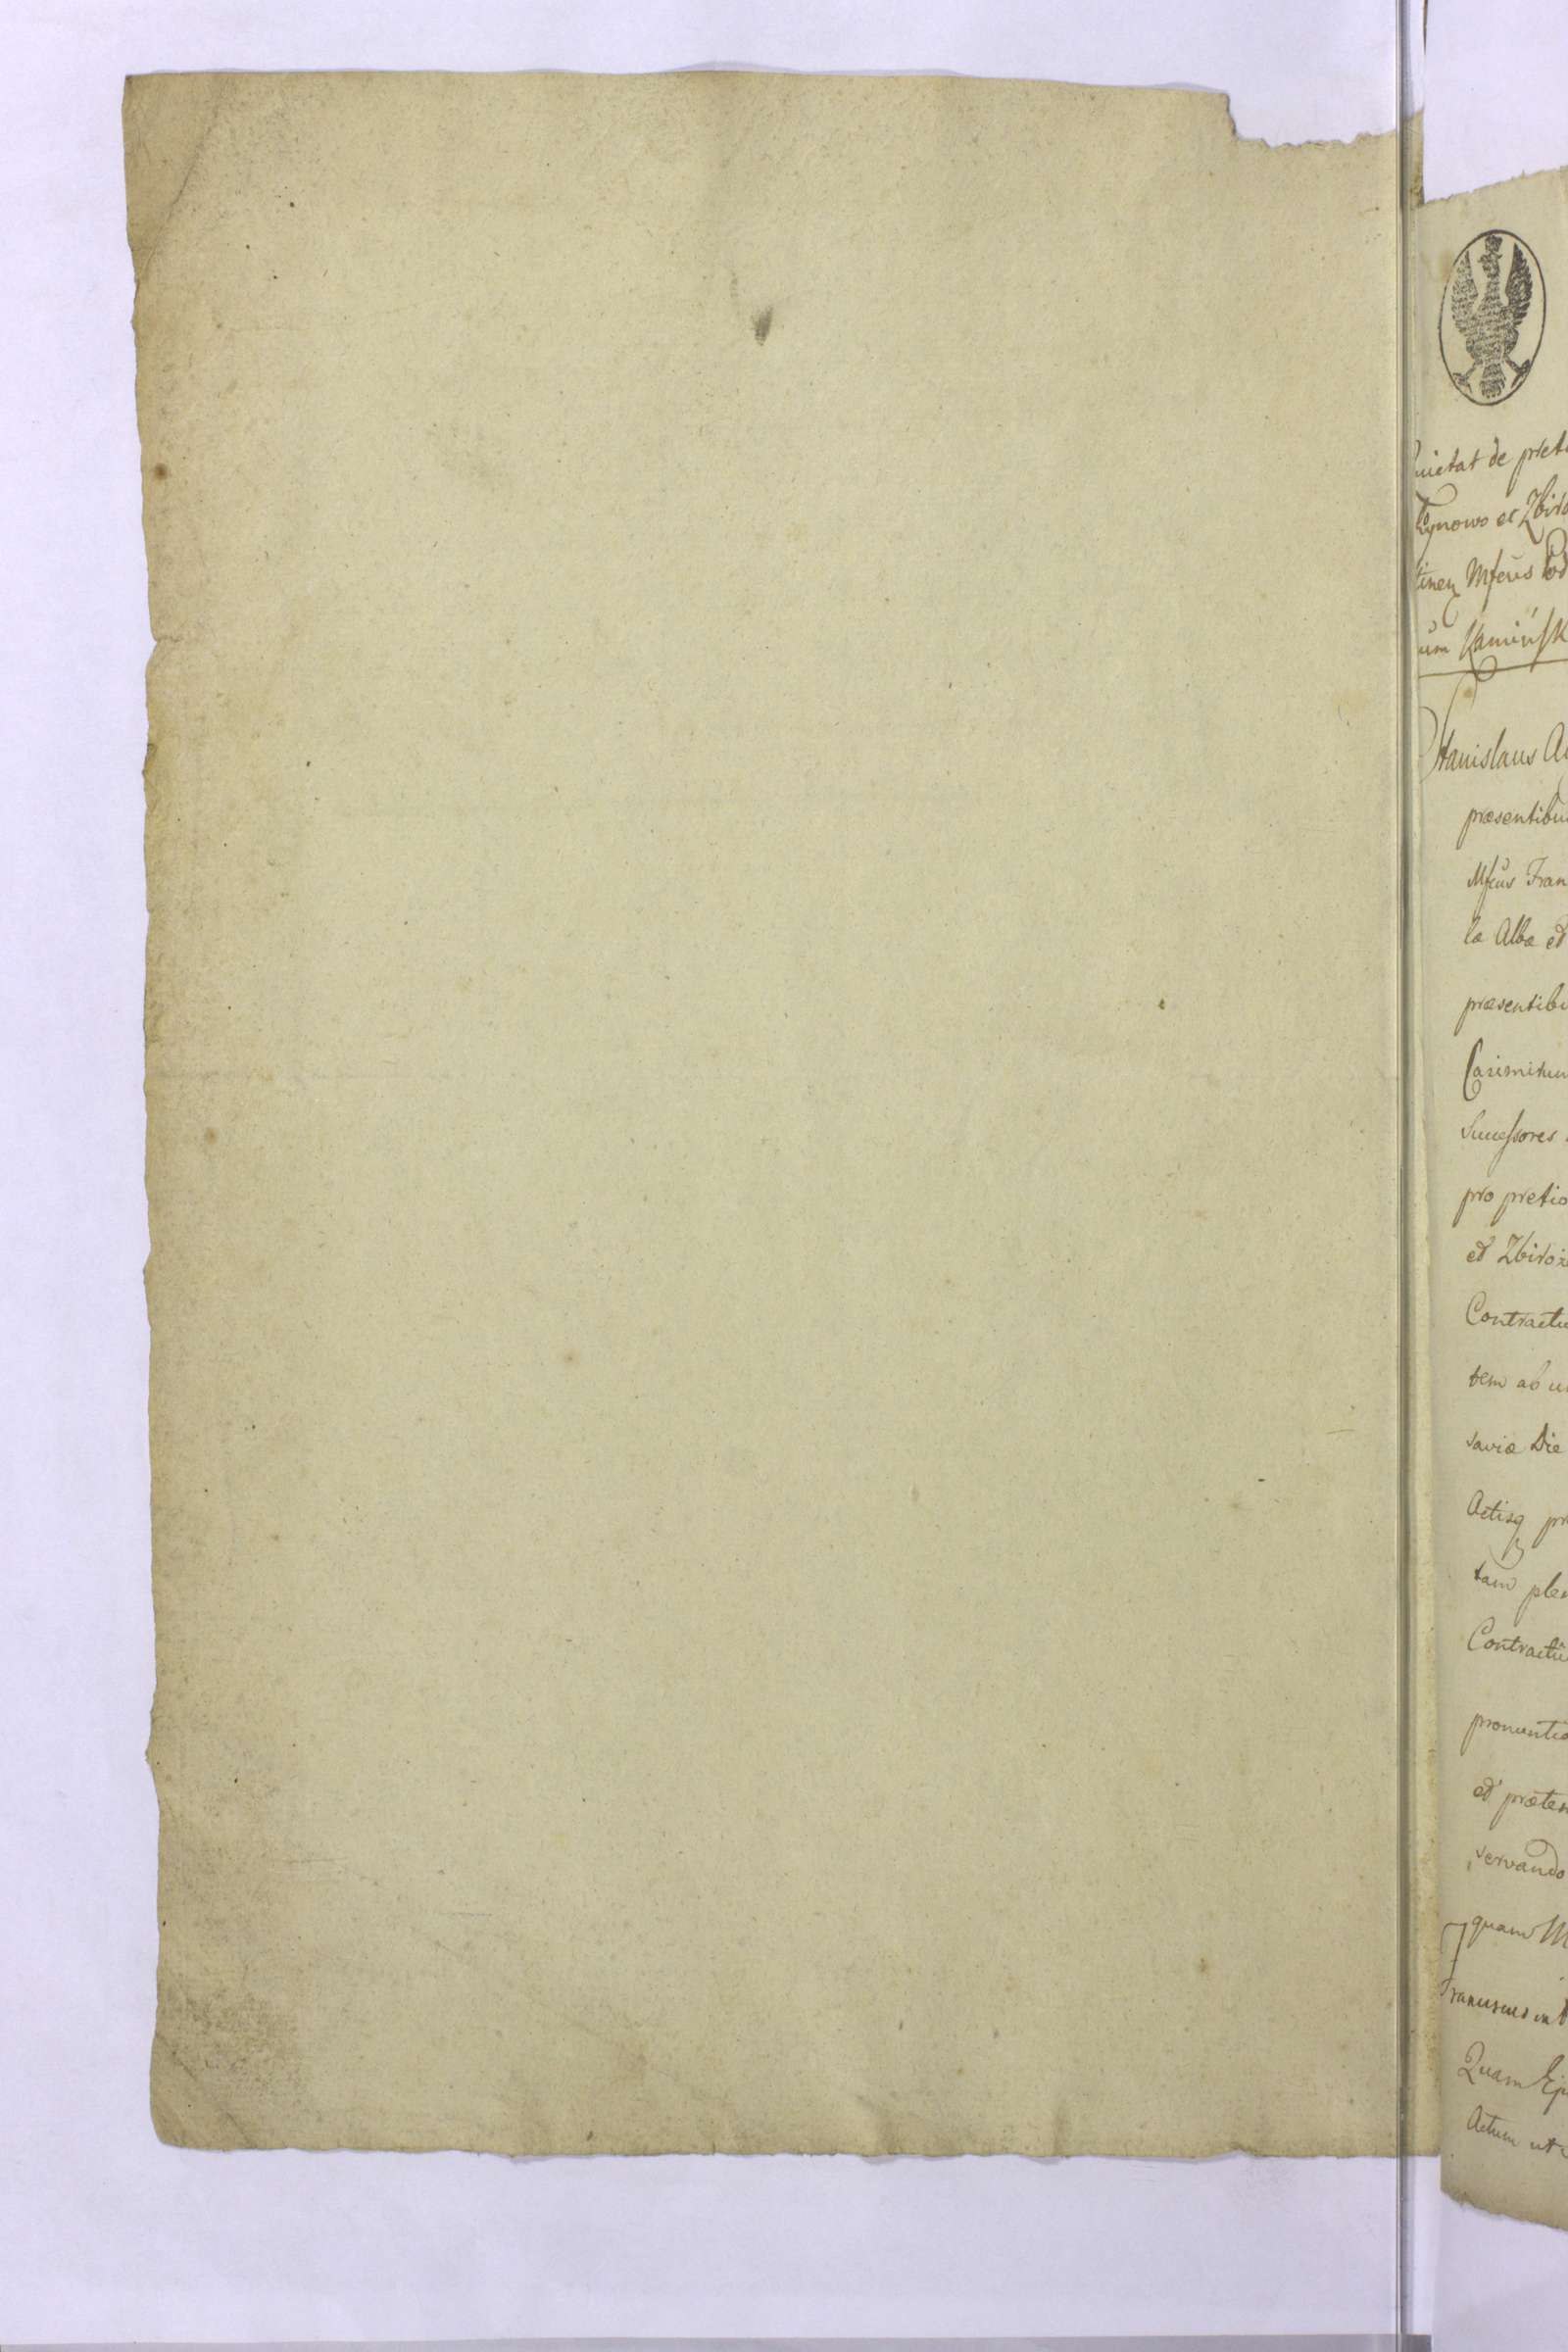 uietat de preti
Tynowo et Zbiro
tinen Mfcus Pod
um Kamińsk
Stanislaus Au
præsentibu
Mfcus Fran
la Alba et
præsentibu
Casimirum
Successores
pro pretio
et Zbiroż
Contractu
tem ab u
saviæ Die
Actisq præ
tam plen
Contractu
pronuntia
et præten
servando
quam M
Franciscus
Quam
Actum ut